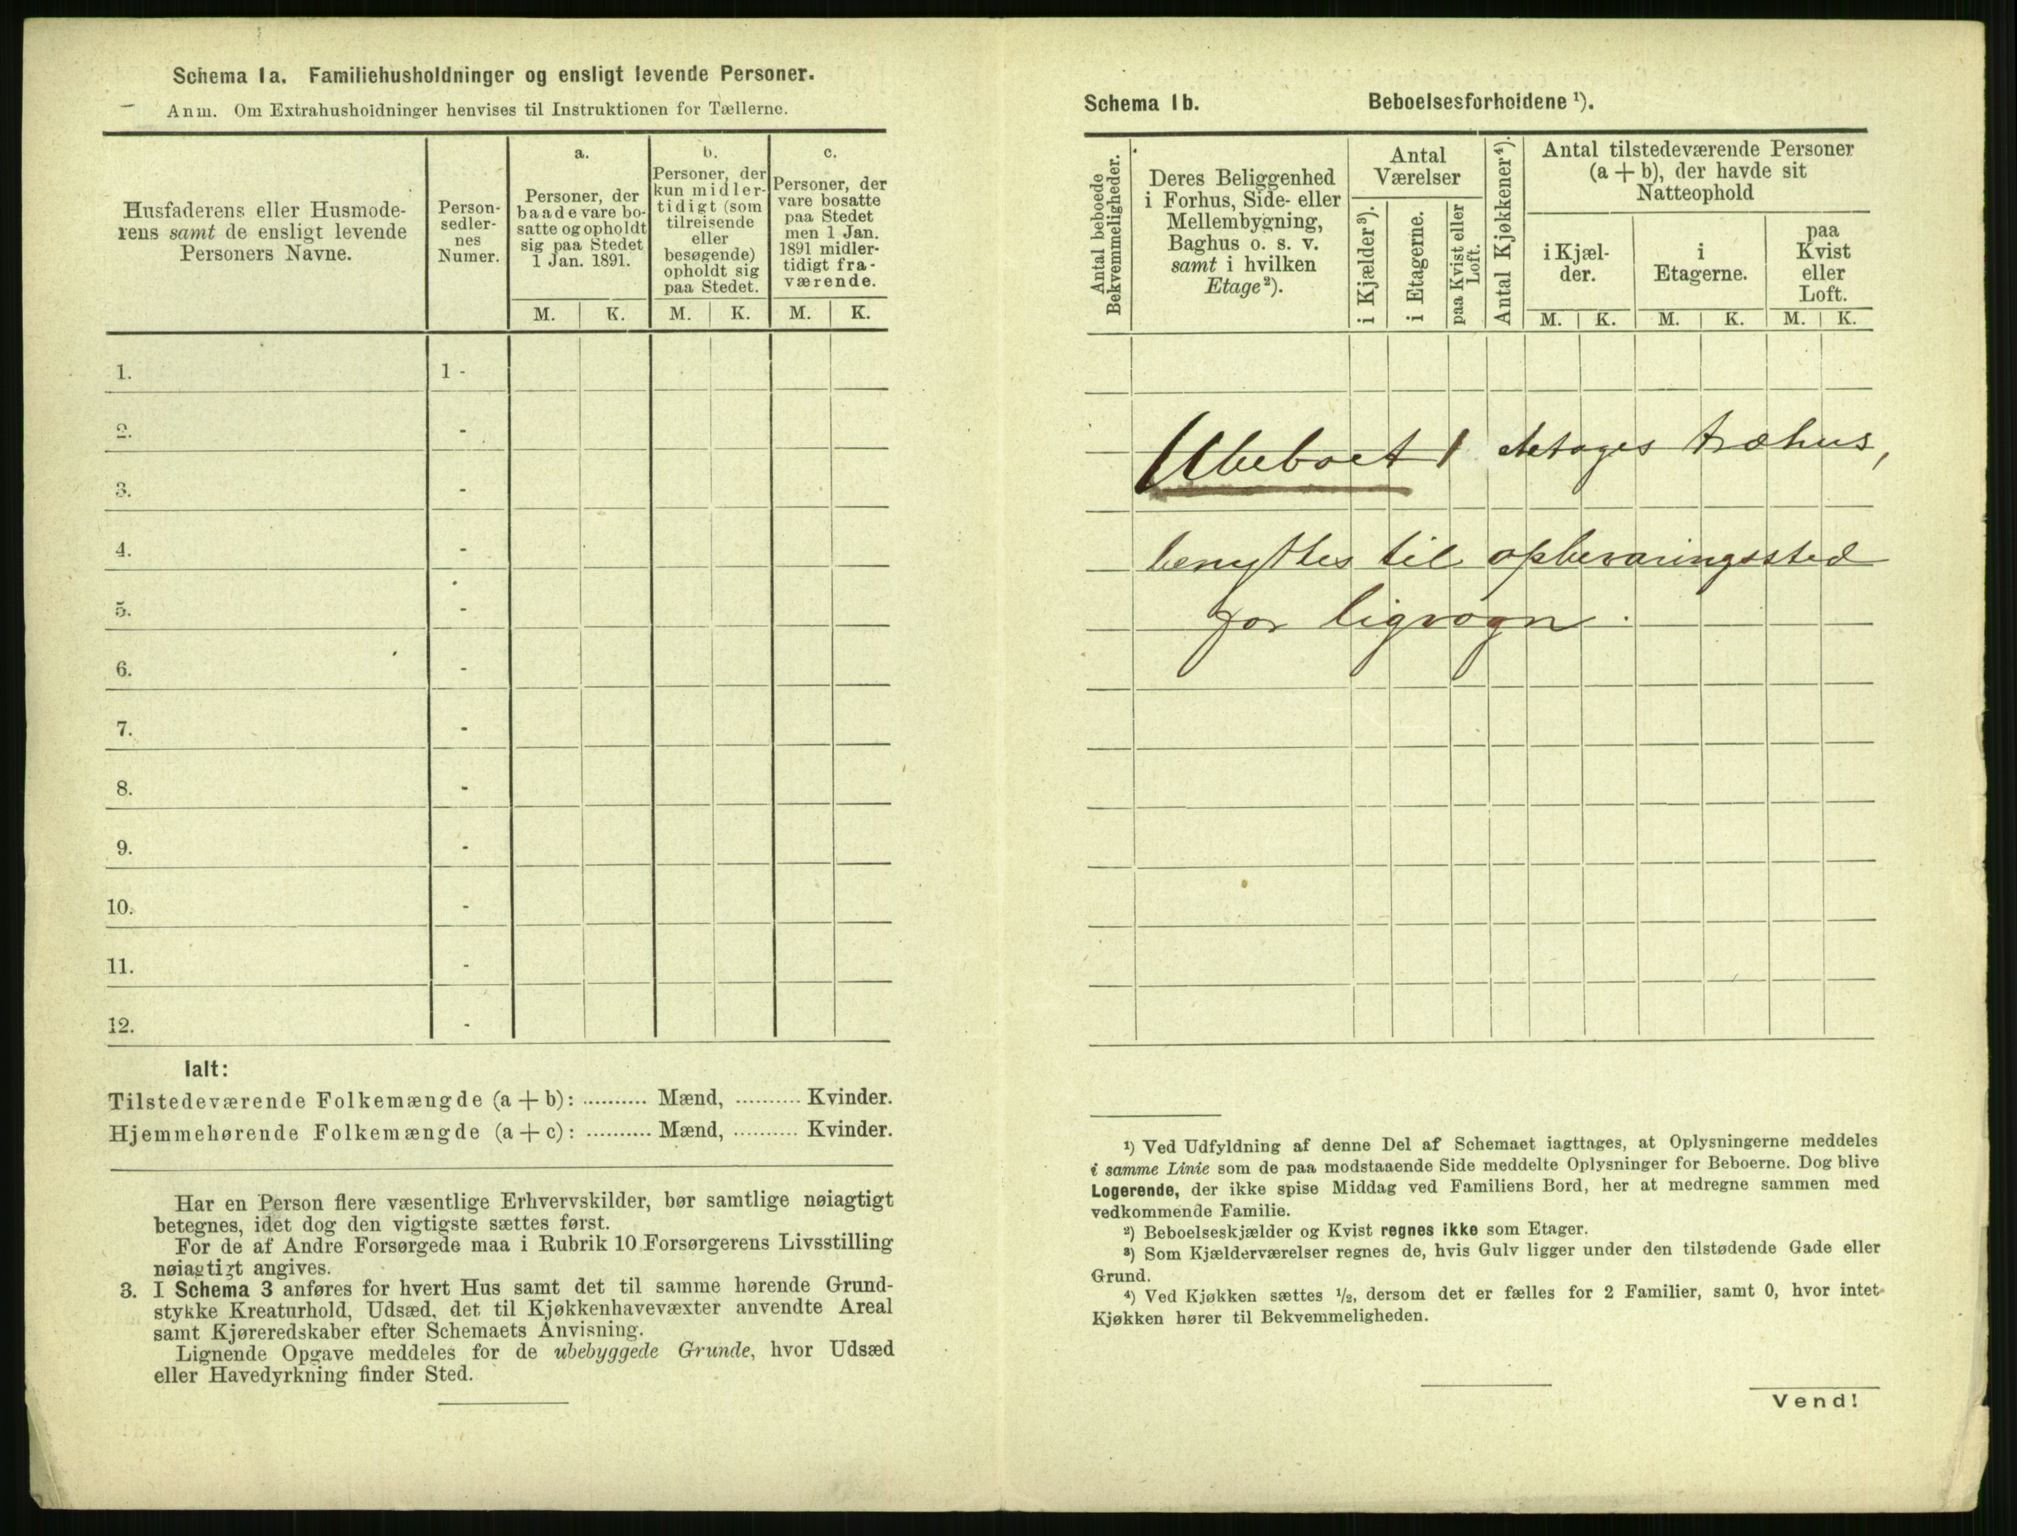 Schema 1a. Familiehusholdninger og ensligt levende Personer.
Anm. Om Extrahusholdninger henvises til Instruktionen for Tællerne.
Husfaderens eller Husmode-
rens samt de ensligt levende
Personers Navne.
Person-
sedler-
nes
Numer.
a.
Personer, der
baade vare bo-
satte og opholdt
sig paa Stedet
1 Jan. 1891.
b.
Personer, der
kun midler-
tidigt (som
tilreisende
eller
besøgende)
opholdt sig
paa Stedet.
c.
Personer, der
vare bosatte
paa Stedet
men 1 Jan.
1891 midler-
tidigt fra-
værende.
M. K. M. K. M. K.
1. 1 -
2. -
3. -
4. -
5. -
6. -
7. -
8. -
9. -
10. -
11. -
12. -
Ialt:
Tilstedeværende Folkemængde (a + b): .......... Mænd, .......... Kvinder.
Hjemmehørende Folkemængde (a + c): .......... Mænd, .......... Kvinder.
Har en Person flere væsentlige Erhvervskilder, bør samtlige nøiagtigt
betegnes, idet dog den vigtigste sættes først.
For de af Andre Forsørgede maa i Rubrik 10 Forsørgerens Livsstilling
nøiagtigt angives.
3. I Schema 3 anføres for hvert Hus samt det til samme hørende Grund-
stykke Kreaturhold, Udsæd, det til Kjøkkenhavevæxter anvendte Areal
samt Kjøreredskaber efter Schemaets Anvisning.
Lignende Opgave meddeles for de ubebyggede Grunde, hvor Udsæd
eller Havedyrkning finder Sted.
Schema 1b. Beboelsesforholdene ¹).
Antal beboede
Bekvemmeligheder.
Deres Beliggenhed
i Forhus, Side- eller
Mellembygning,
Baghus o. s. v.
samt i hvilken
Etage ²).
Antal
Værelser
i Kjælder ³).
i Etagerne.
paa Kvist eller
Loft.
Antal Kjøkkener ⁴).
Antal tilstedeværende Personer
(a + b), der havde sit
Natteophold
i Kjæl-
der.
i
Etagerne.
paa
Kvist
eller
Loft.
M. K. M. K. M. K.
Ubeboet 1 etages træhus,
benyttes til opbevaringssted
for ligvogn.
¹) Ved Udfyldning af denne Del af Schemaet iagttages, at Oplysningerne meddeles
i samme Linie som de paa modstaaende Side meddelte Oplysninger for Beboerne. Dog blive
Logerende, der ikke spise Middag ved Familiens Bord, her at medregne sammen med
vedkommende Familie.
²) Beboelseskjælder og Kvist regnes ikke som Etager.
³) Som Kjælderværelser regnes de, hvis Gulv ligger under den tilstødende Gade eller
Grund.
⁴) Ved Kjøkken sættes ½, dersom det er fælles for 2 Familier, samt 0, hvor intet
Kjøkken hører til Bekvemmeligheden.
Vend!